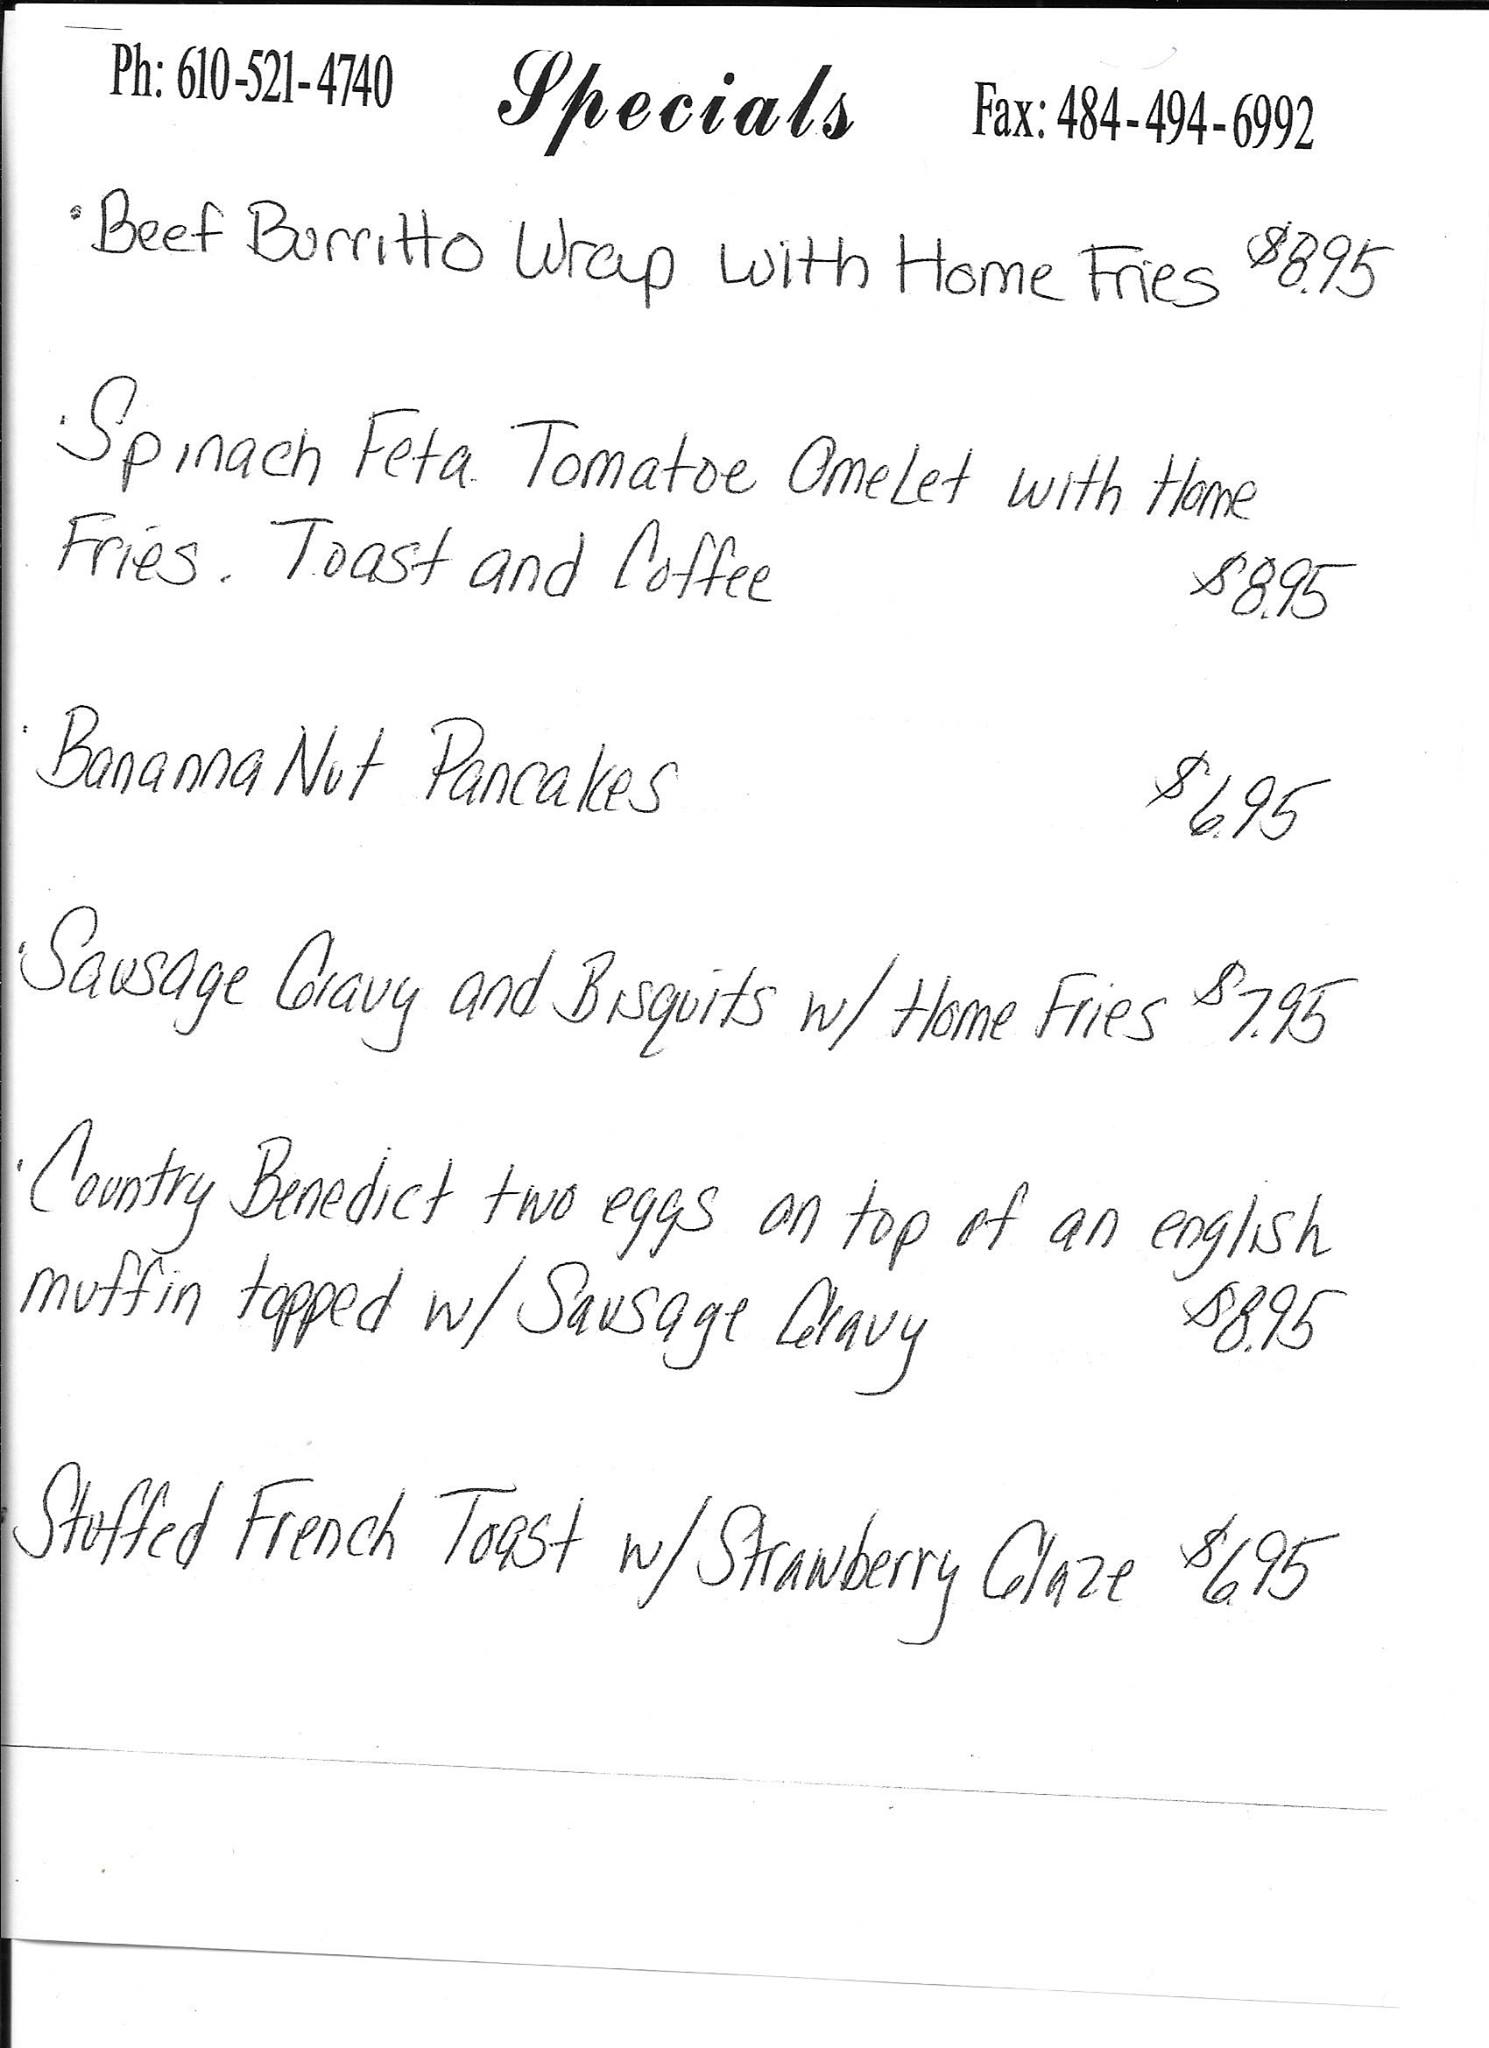 Ph: 610-521-4740 Specials Fax: 484-494-6992
· Beef Burritto Wrap with Home Fries $8.95
· Spinach Feta Tomatoe Omelet with Home
Fries. Toast and Coffee $8.95
· Bananna Nut Pancakes $6.95
· Sausage Gravy and Bisquits w/ Home Fries $7.95
· Country Benedict two eggs on top of an english
muffin topped w/ Sausage Gravy $8.95
· Stuffed French Toast w/ Strawberry Glaze $6.95